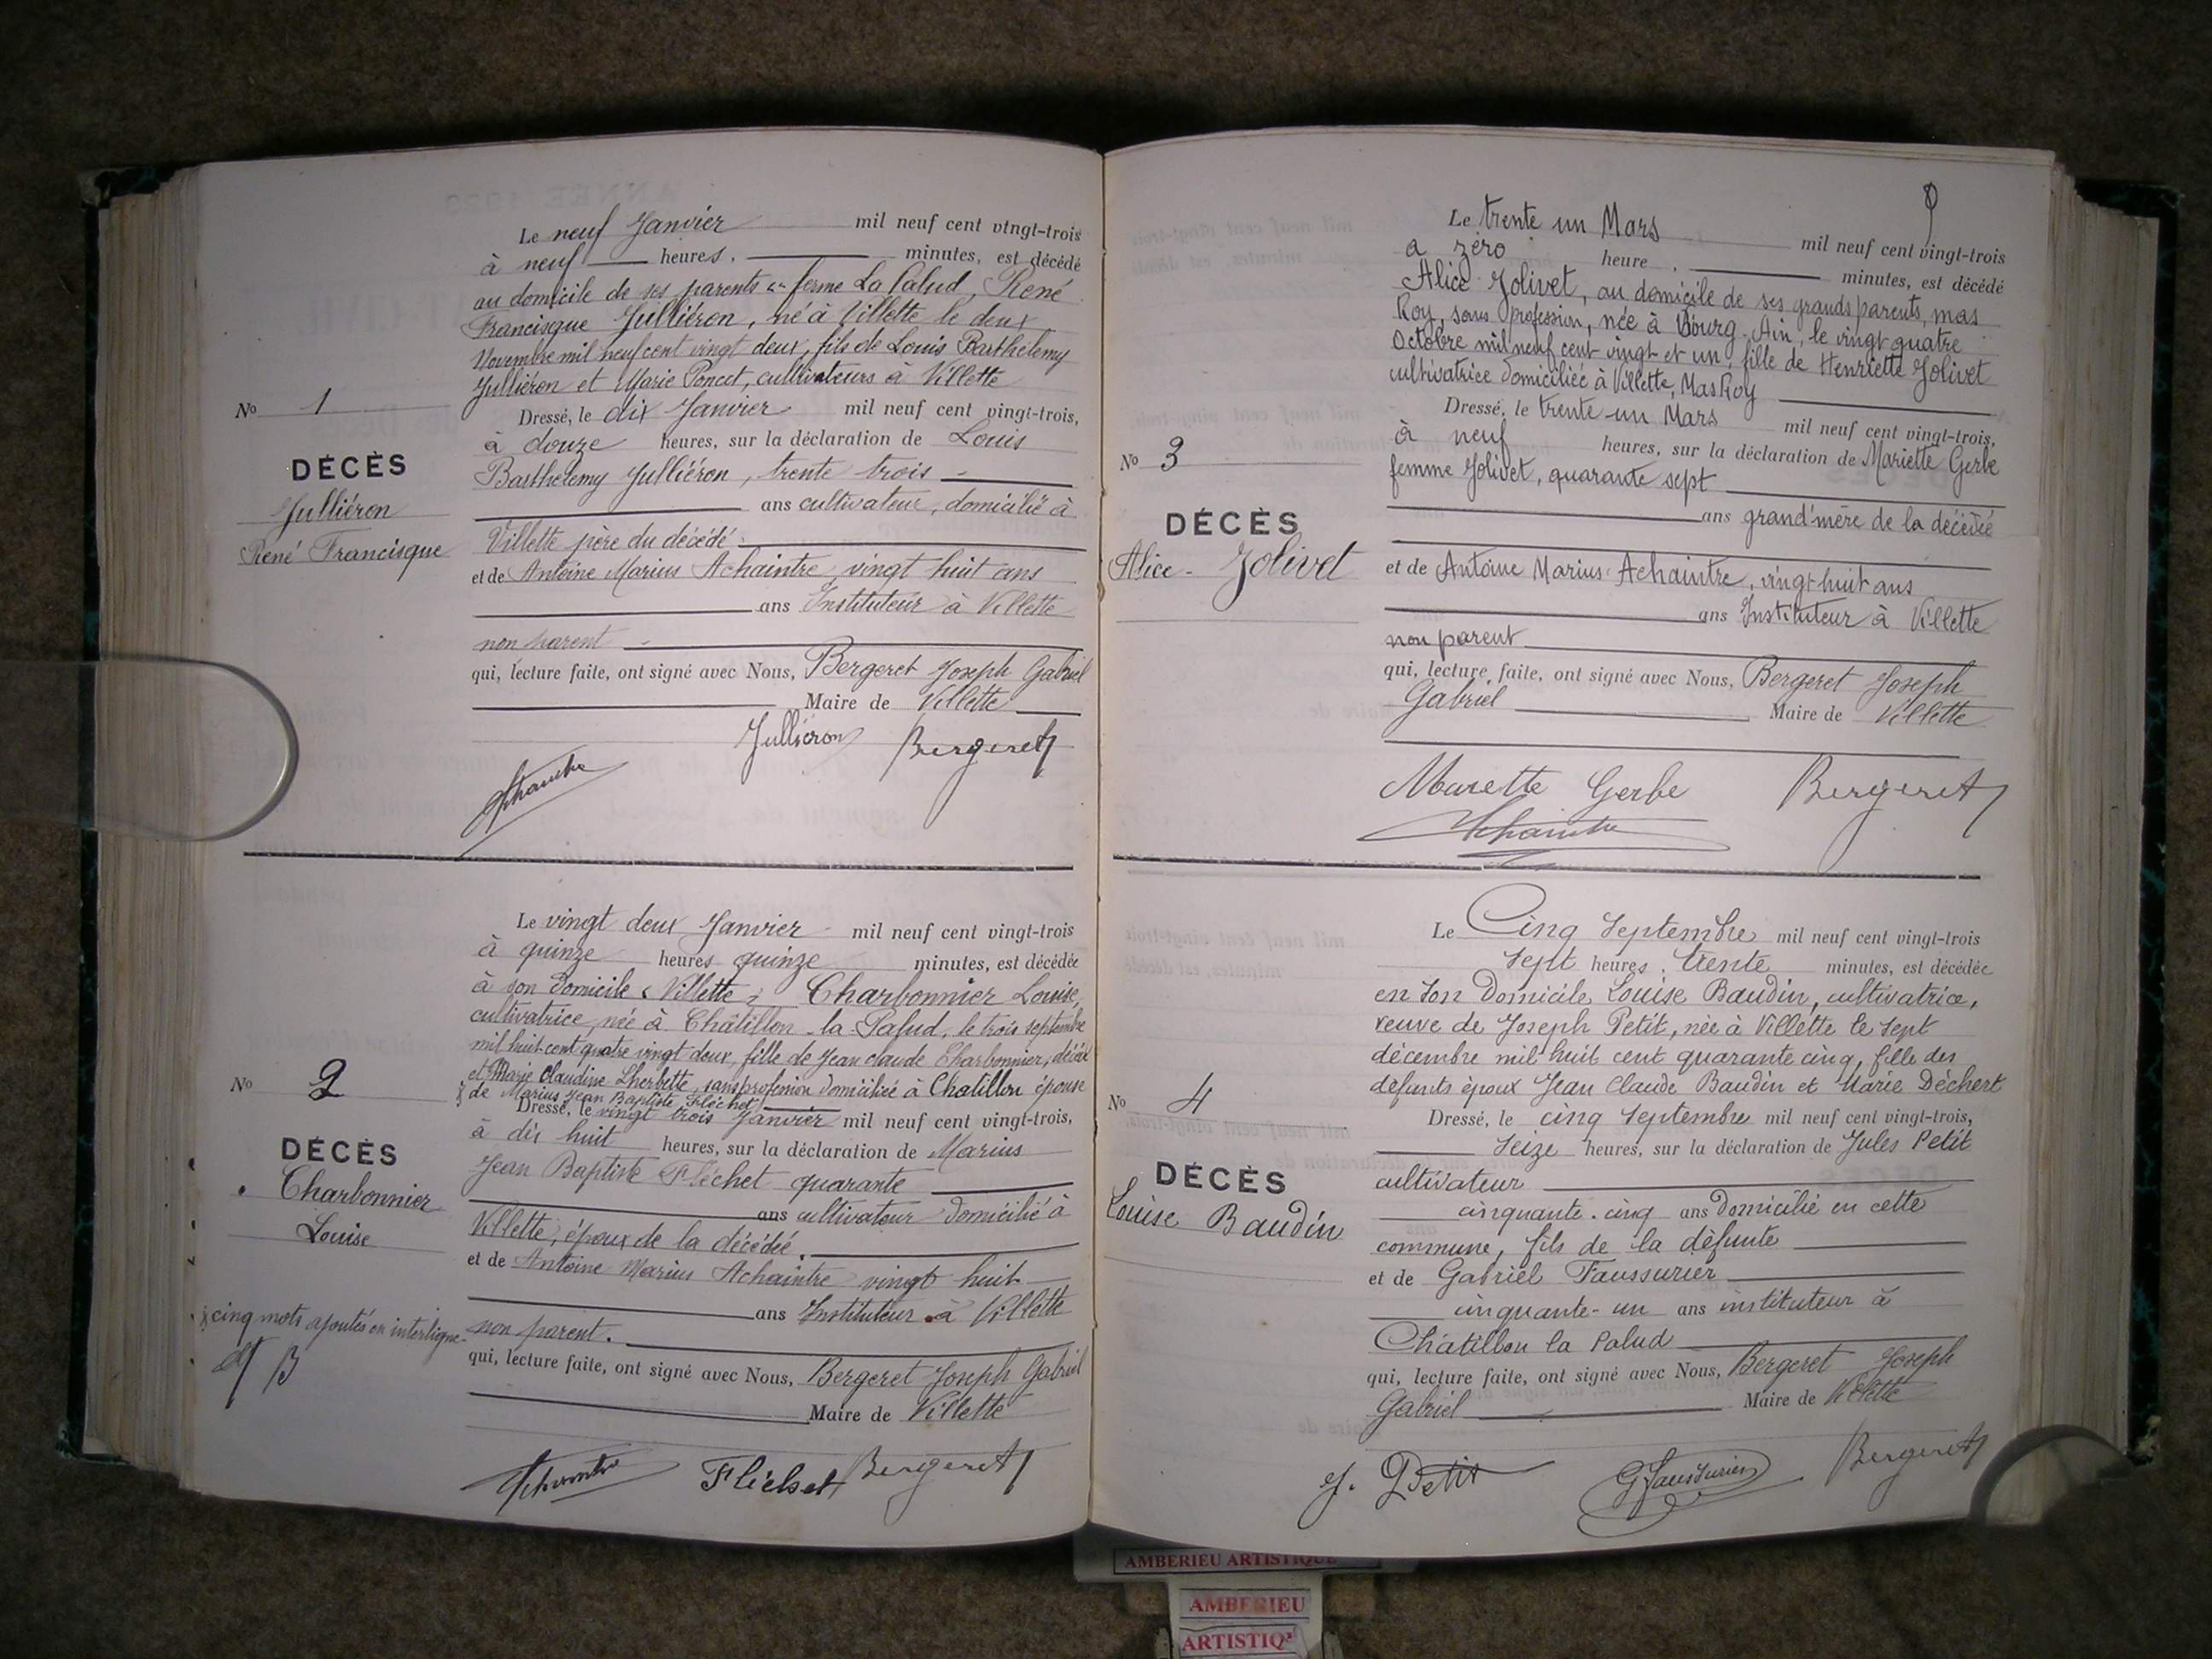 Le neuf Janvier mil neuf cent vingt-trois
à neuf heures, minutes, est décédé
au domicile de ses parents "ferme La Palud, René
Francisque Julliéron, né à Villette le deux
Novembre mil neuf cent vingt deux, fils de Louis Barthelemy
Julliéron et Marie Poncet, cultivateurs à Villette
No 1
Dressé, le dix Janvier mil neuf cent vingt-trois,
à douze heures, sur la déclaration de Louis
DÉCÈS
Barthelemy Julliéron, trente trois
Julliéron
ans cultivateur, domicilié à
René Francisque
Villette père du décédé
et de Antoine Marius Achaintre vingt huit ans
ans Instituteur à Villette
non parent
qui, lecture faite, ont signé avec Nous, Bergeret Joseph Gabriel
Maire de Villette
Julliéron Bergeret
Achaintre
Le vingt deux Janvier mil neuf cent vingt-trois
à quinze heures quinze minutes, est décédée
à son domicile "Villette" Charbonnier Louise,
cultivatrice, née à Châtillon-la-Palud, le trois septembre
mil huit cent quatre vingt deux, fille de Jean claude Charbonnier, décédé
et Marie Claudine Lherbette, sans profession domiciliée à Chatillon épouse
de Marius Jean Baptiste Fléchet
No 2
Dressé, le vingt trois Janvier mil neuf cent vingt-trois,
à dix huit heures, sur la déclaration de Marius
DÉCÈS
Jean Baptiste Fléchet quarante
Charbonnier
Louise
ans cultivateur domicilié à
Villette, époux de la décédée.
et de Antoine Marius Achaintre vingt huit
ans Instituteur à Villette
cinq mots ajoutés en interligne
non parent.
B
qui, lecture faite, ont signé avec Nous, Bergeret Joseph Gabriel
Maire de Villette
Achaintre Fléchet Bergeret
Le trente un Mars mil neuf cent vingt-trois
a zéro heure, minutes, est décédé
Alice Jolivet, au domicile de ses grands parents, mas
Roy, sans profession, née à Bourg-Ain, le vingt quatre
Octobre mil neuf cent vingt et un, fille de Henriette Jolivet
cultivatrice domiciliée à Villette, Mas Roy
Dressé, le trente un Mars mil neuf cent vingt-trois,
No 3
à neuf heures, sur la déclaration de Mariette Gerbe
femme Jolivet, quarante sept
DÉCÈS
ans grand'mère de la décédée
Alice Jolivet
et de Antoine Marius Achaintre, vingt huit ans
ans Instituteur à Villette
non parent
qui, lecture faite, ont signé avec Nous, Bergeret Joseph
Gabriel Maire de Villette
Mariette Gerbe Bergeret
Achaintre
Le Cinq Septembre mil neuf cent vingt-trois
Sept heures, trente minutes, est décédée
en son Domicile Louise Baudin, cultivatrice,
veuve de Joseph Petit, née à Villette le sept
décembre mil huit cent quarante cinq, fille des
défunts époux Jean Claude Baudin et Marie Déchert
No 4
Dressé, le cinq Septembre mil neuf cent vingt-trois,
Seize heures, sur la déclaration de Jules Petit
DÉCÈS
cultivateur
Louise Baudin
cinquante-cinq ans domicilié en cette
commune, fils de la défunte
et de Gabriel Faussurier
cinquante-un ans instituteur à
Châtillon la Palud
qui, lecture faite, ont signé avec Nous, Bergeret Joseph
Gabriel Maire de Villette
J. Petit G Faussurier Bergeret
AMBERIEU ARTISTIQUE
AMBERIEU
ARTISTIQ